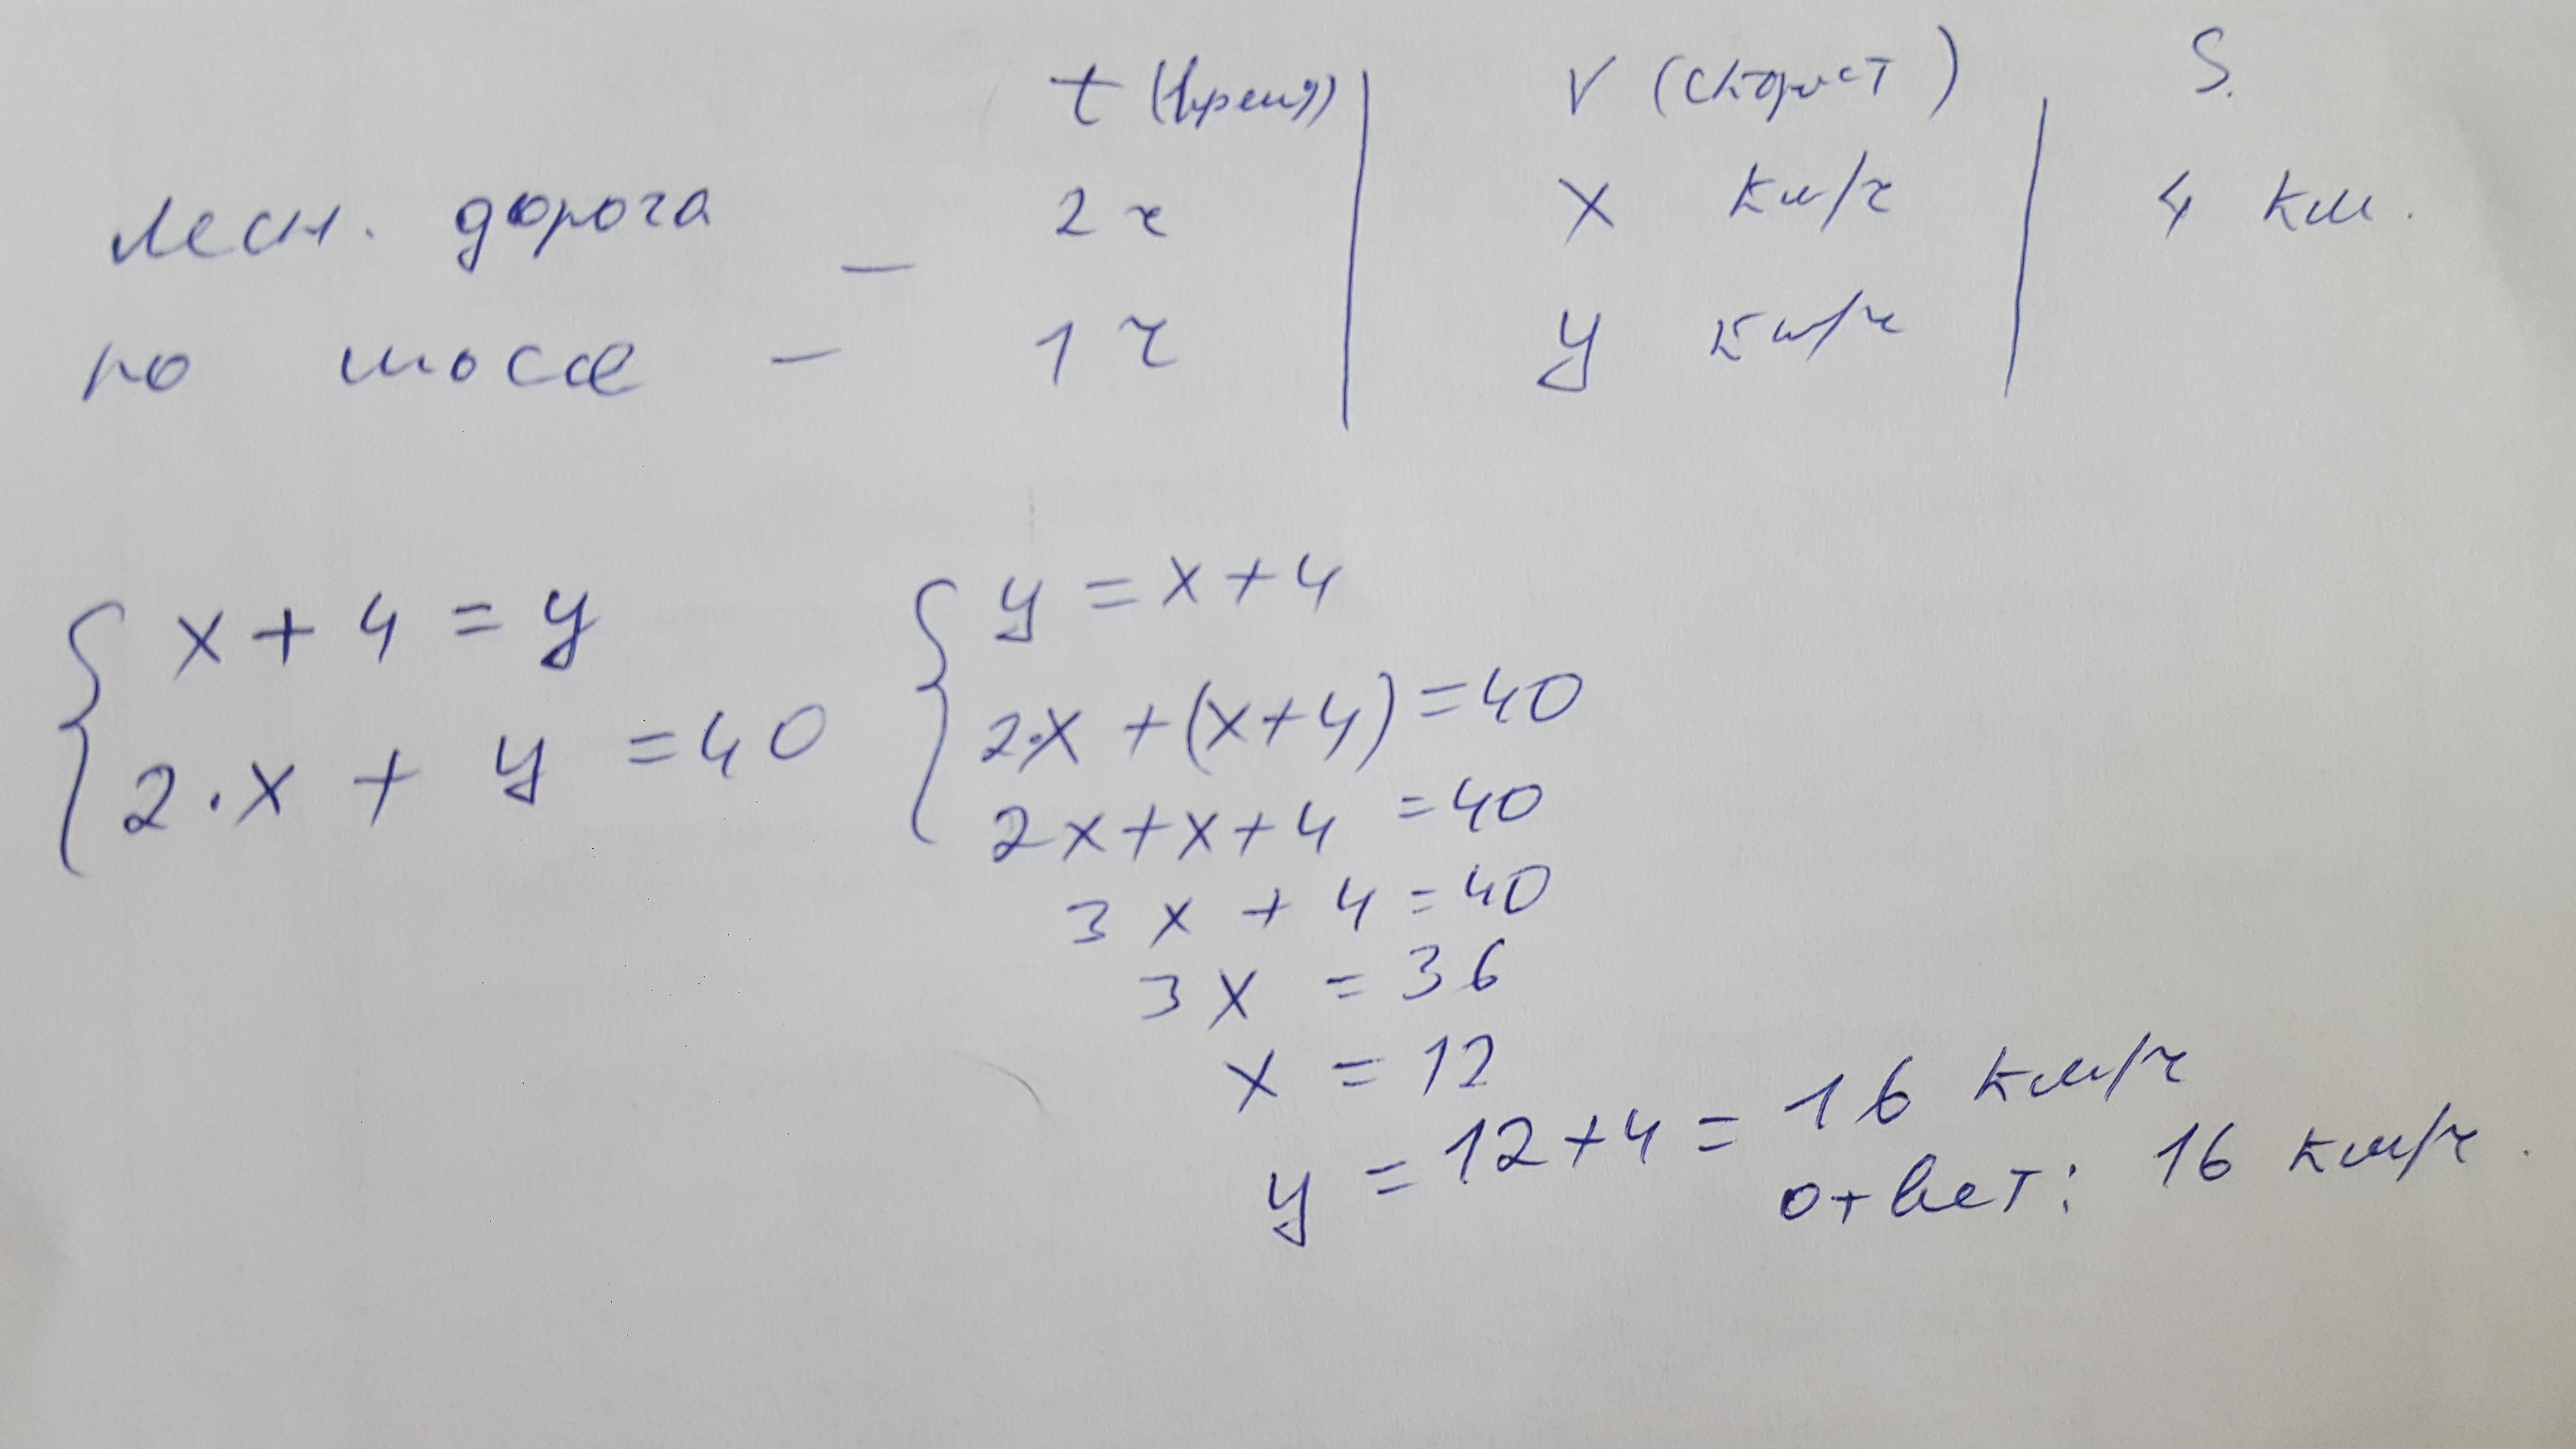 t (время) | V (скорост) | S.
лесн. дорога — 2 ч | x км/ч | 4 км.
по шоссе — 1 ч | y км/ч |
{ x + 4 = y
2 · x + y = 40
{ y = x + 4
2·x + (x + 4) = 40
2x + x + 4 = 40
3x + 4 = 40
3x = 36
x = 12
y = 12 + 4 = 16 км/ч
ответ: 16 км/ч.